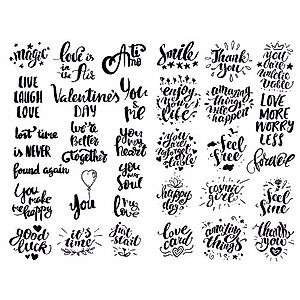 magic
LIVE
LAUGH
LOVE
lost time
is NEVER
found again
You
make
me happy
good
luck
love is
in
the Air
Valentine's
DAY
We're
Better
together
You
it's
time
Ti
amo
You
&
me
you
my
heart
you
are
my
love
just
start
Smile
enjoy
your
life
You
are
happy
day
love
card
Thank
you
amazing
things
happen
feel
free
cosmic
girl
amazing
things
you are
LOVE
MORE
WORRY
LESS
feel
fine
thank
you